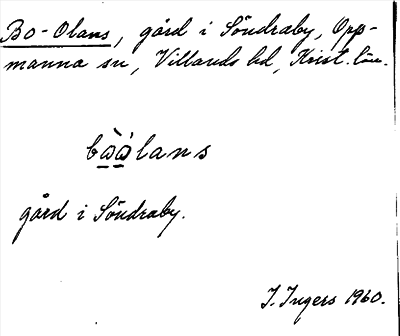 Bo-Olans, gård i Söndraby, Opp-
manna sn, Villands hd, Krist. län.
bⱥ̀ⱥ́lans
gård i Söndraby.
I. Ingers 1960.